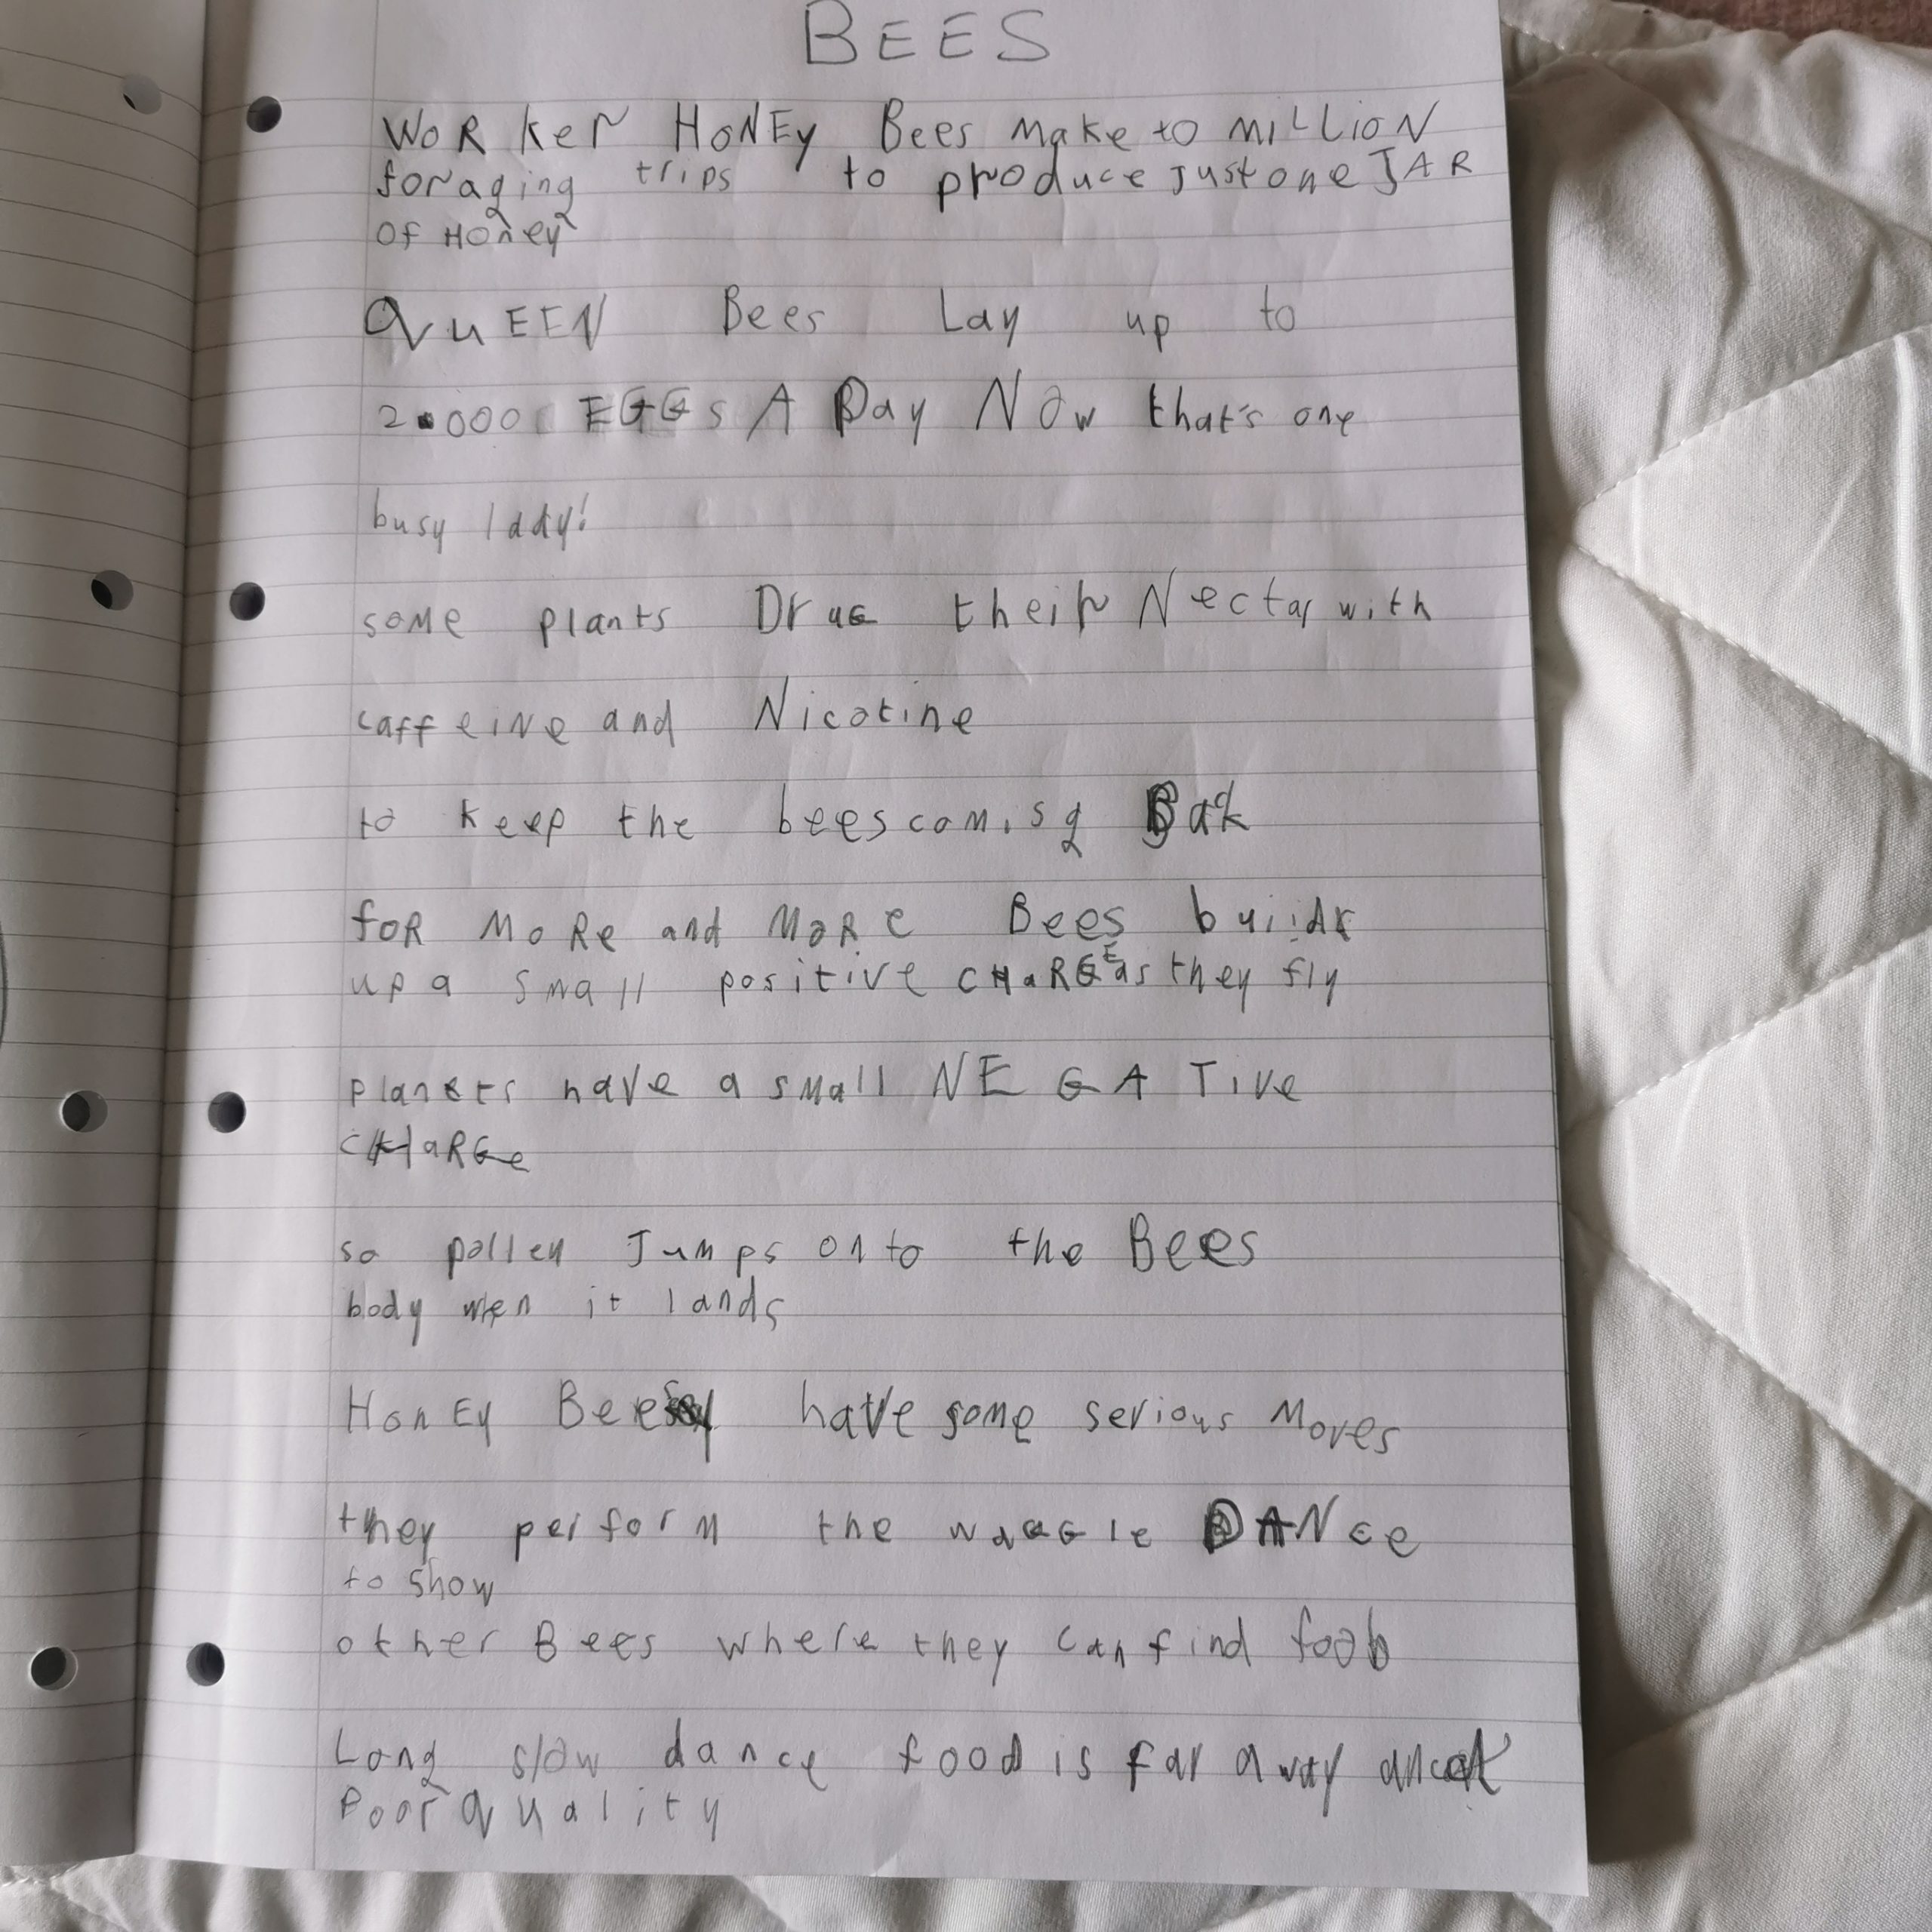 BEES
WORKer HONEy Bees Make to MILLION
foraging trips to produce just one JAR
of Honey
QUEEN Bees Lay up to
2.000 EGGs A Day NOw that's one
busy lady!
some plants DruG their Nectar with
caffeiNe and Nicotine
to keep the bees comisg Bak
foR MoRe and MoRe Bees buiids
up a small positive CHaRGE as they fly
planets have a small NEGATive
CHaRGe
so pollen Jumps onto the Bees
body wen it lands
HonEy Bees have some serious Moves
they perform the waGGle DANce
to show
other Bees where they can find foob
Long slow dance food is far away and
Poor quality